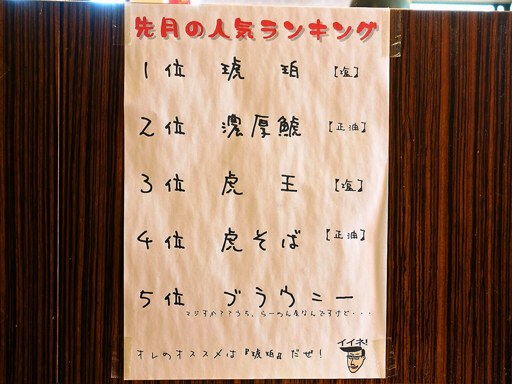 先月の人気ランキング
1位 琥珀 【塩】
2位 濃厚鯱 【正油】
3位 虎王 【塩】
4位 虎そば 【正油】
5位 ブラウニー
マジすか??うち、らーめん屋なんですけど・・・
イイネ!
オレのオススメは『琥珀』だぜ!